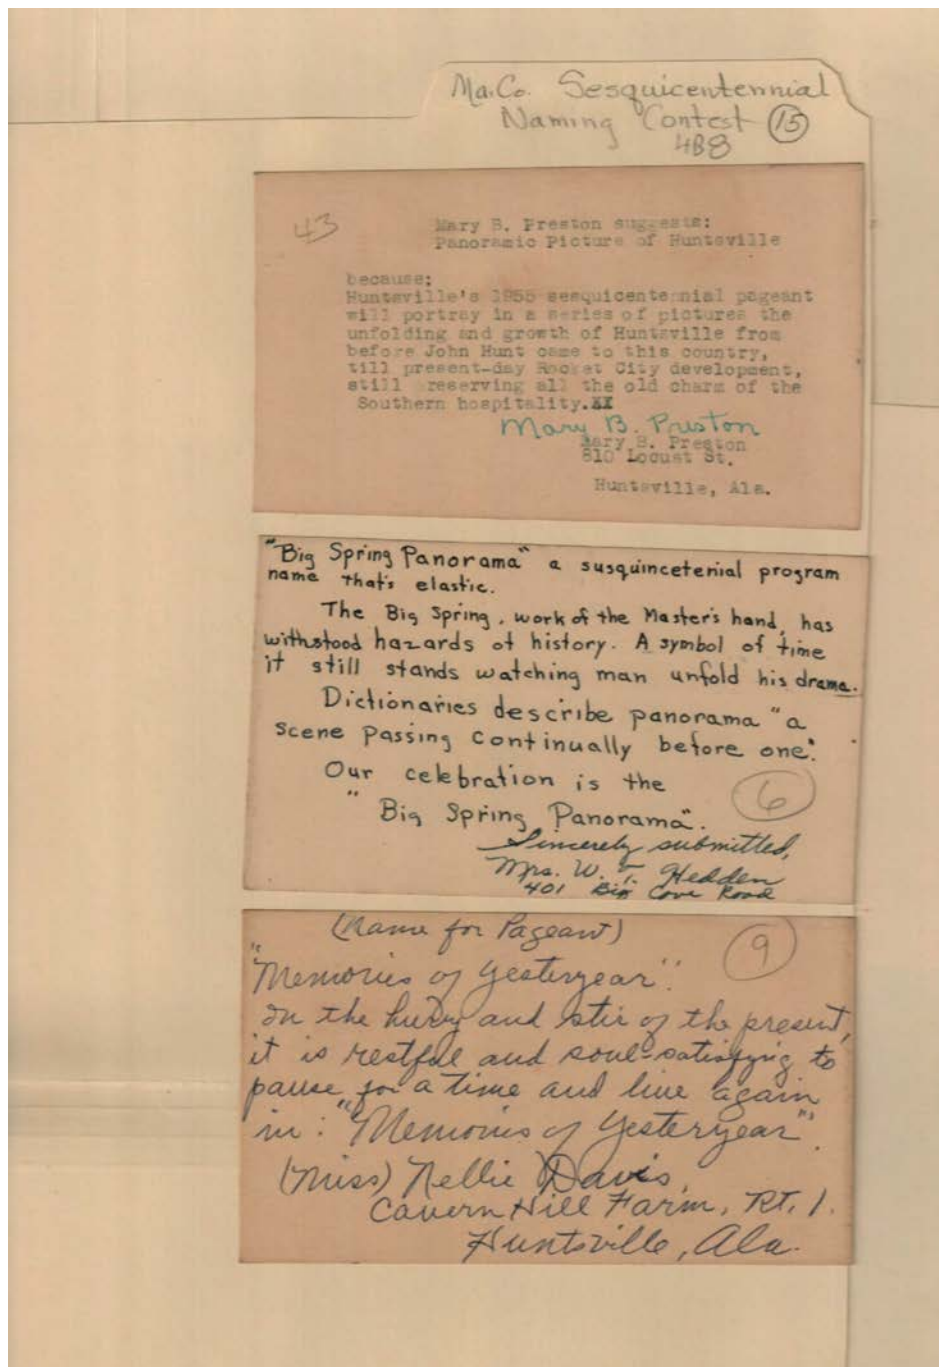 Ma. Co. Sesquicentennial
Naming Contest 15
4B8
43
Mary B. Preston suggests:
Panoramic Picture of Huntsville
because:
Huntsville's 1955 sesquicentennial pageant
will portray in a series of pictures the
unfolding and growth of Huntsville from
before John Hunt came to this country,
till present-day Rocket City development,
still reserving all the old charm of the
Southern hospitality.XX
Mary B. Preston
Mary B. Preston
810 Locust St.
Huntsville, Ala.
"Big Spring Panorama" a susquincetenial program
name that's elastic.
The Big Spring, work of the Master's hand, has
withstood hazards of history. A symbol of time
it still stands watching man unfold his drama.
Dictionaries describe panorama "a
scene passing continually before one".
Our celebration is the
"Big Spring Panorama".
6
Sincerely submitted,
Mrs. W. T. Hedden
401 Big Cove Road
(Name for Pageant)
9
"Memories of Yesteryear".
In the hurry and stir of the present,
it is restful and soul-satisfying to
pause for a time and live again
in: "Memories of Yesteryear".
(Miss) Nellie Davis,
Cavern Hill Farm, Rt. 1.
Huntsville, Ala.